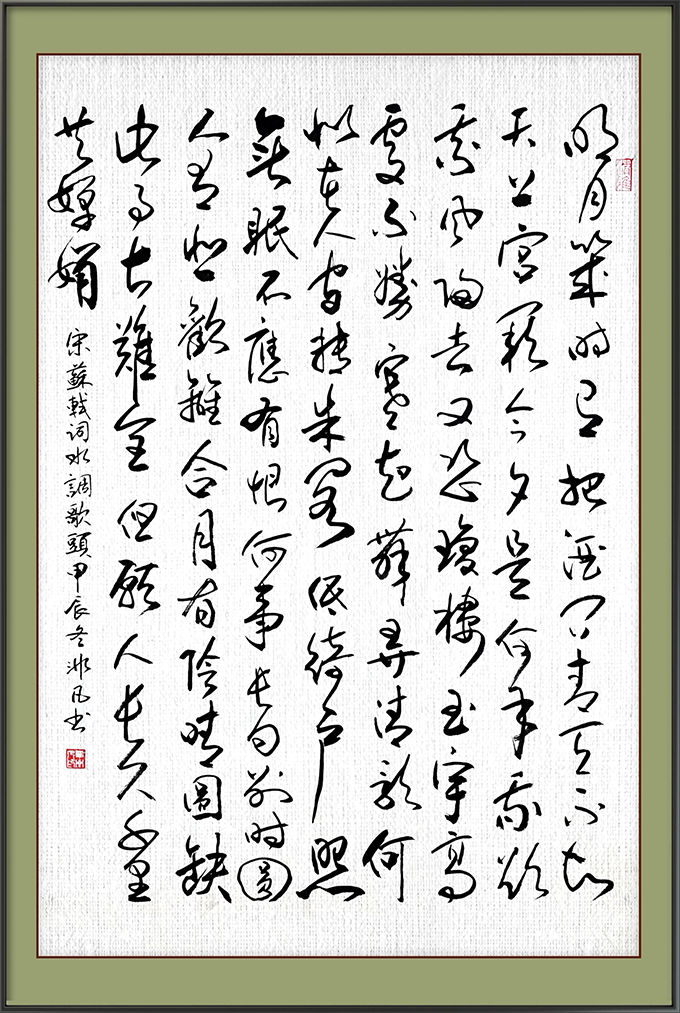 明月幾时有把酒问青天不知
天上宫阙今夕是何年我欲
乘风归去又恐瓊樓玉宇高
處不勝寒起舞弄清影何
似在人间转朱阁低绮户照
無眠不應有恨何事长向别时圓
人有悲歡離合月有陰晴圓缺
此事古難全但願人长久千里
共嬋娟
宋蘇軾词水調歌頭甲辰冬非凡书